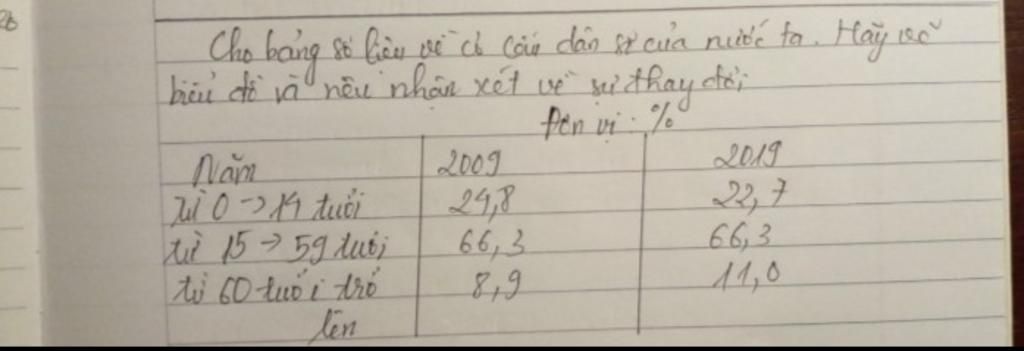 26
Cho bảng số liệu về cơ cấu dân số của nước ta. Hãy vẽ
biểu đồ và nêu nhận xét về sự thay đổi
Đơn vị: %
Năm 2009 2019
từ 0 → 14 tuổi 24,8 22,7
từ 15 → 59 tuổi 66,3 66,3
từ 60 tuổi trở 8,9 11,0
lên